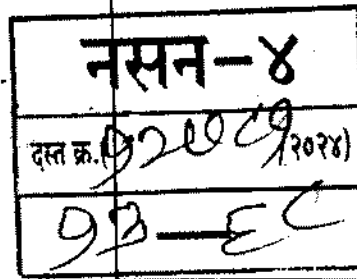 नसन-४
दस्त क्र.(१२७८१/२०२४)
१३-६८